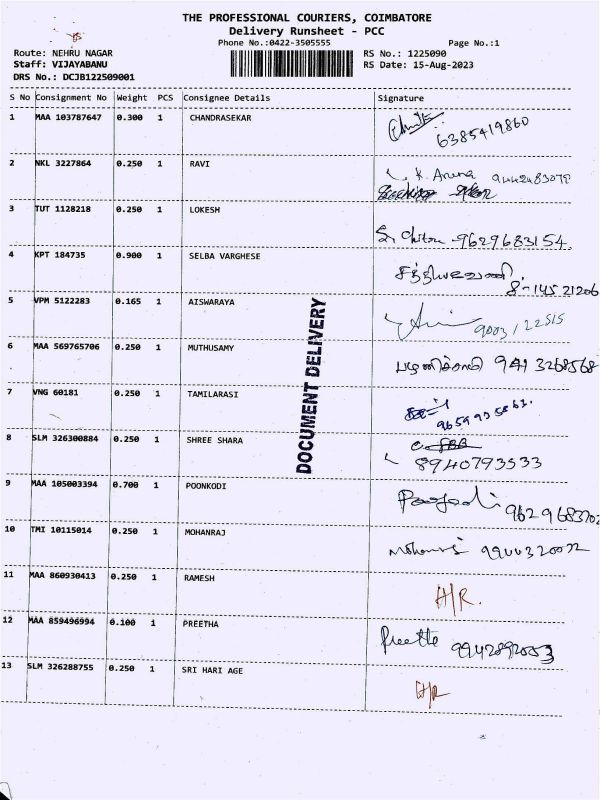 THE PROFESSIONAL COURIERS, COIMBATORE
Delivery Runsheet - PCC
Phone No.:0422-3505555 Page No.:1
Route: NEHRU NAGAR RS No.: 1225090
Staff: VIJAYABANU RS Date: 15-Aug-2023
DRS No.: DCJB122509001
S No Consignment No Weight PCS Consignee Details Signature
1 MAA 103787647 0.300 1 CHANDRASEKAR
6385419860
2 NKL 3227864 0.250 1 RAVI
K. Aruna
3 TUT 1128218 0.250 1 LOKESH
9629683154
4 KPT 184735 0.900 1 SELBA VARGHESE
5 VPM 5122283 0.165 1 AISWARAYA
9003122515
6 MAA 569765706 0.250 1 MUTHUSAMY
பழனிச்சாமி 9413268568
7 VNG 60181 0.250 1 TAMILARASI
8 SLM 326300884 0.250 1 SHREE SHARA
8940793533
9 MAA 105003394 0.700 1 POONKODI
10 TMI 10115014 0.250 1 MOHANRAJ
11 MAA 860930413 0.250 1 RAMESH
H/R.
12 MAA 859496994 0.100 1 PREETHA
Preetha
13 SLM 326288755 0.250 1 SRI HARI AGE
H/R
DOCUMENT DELIVERY